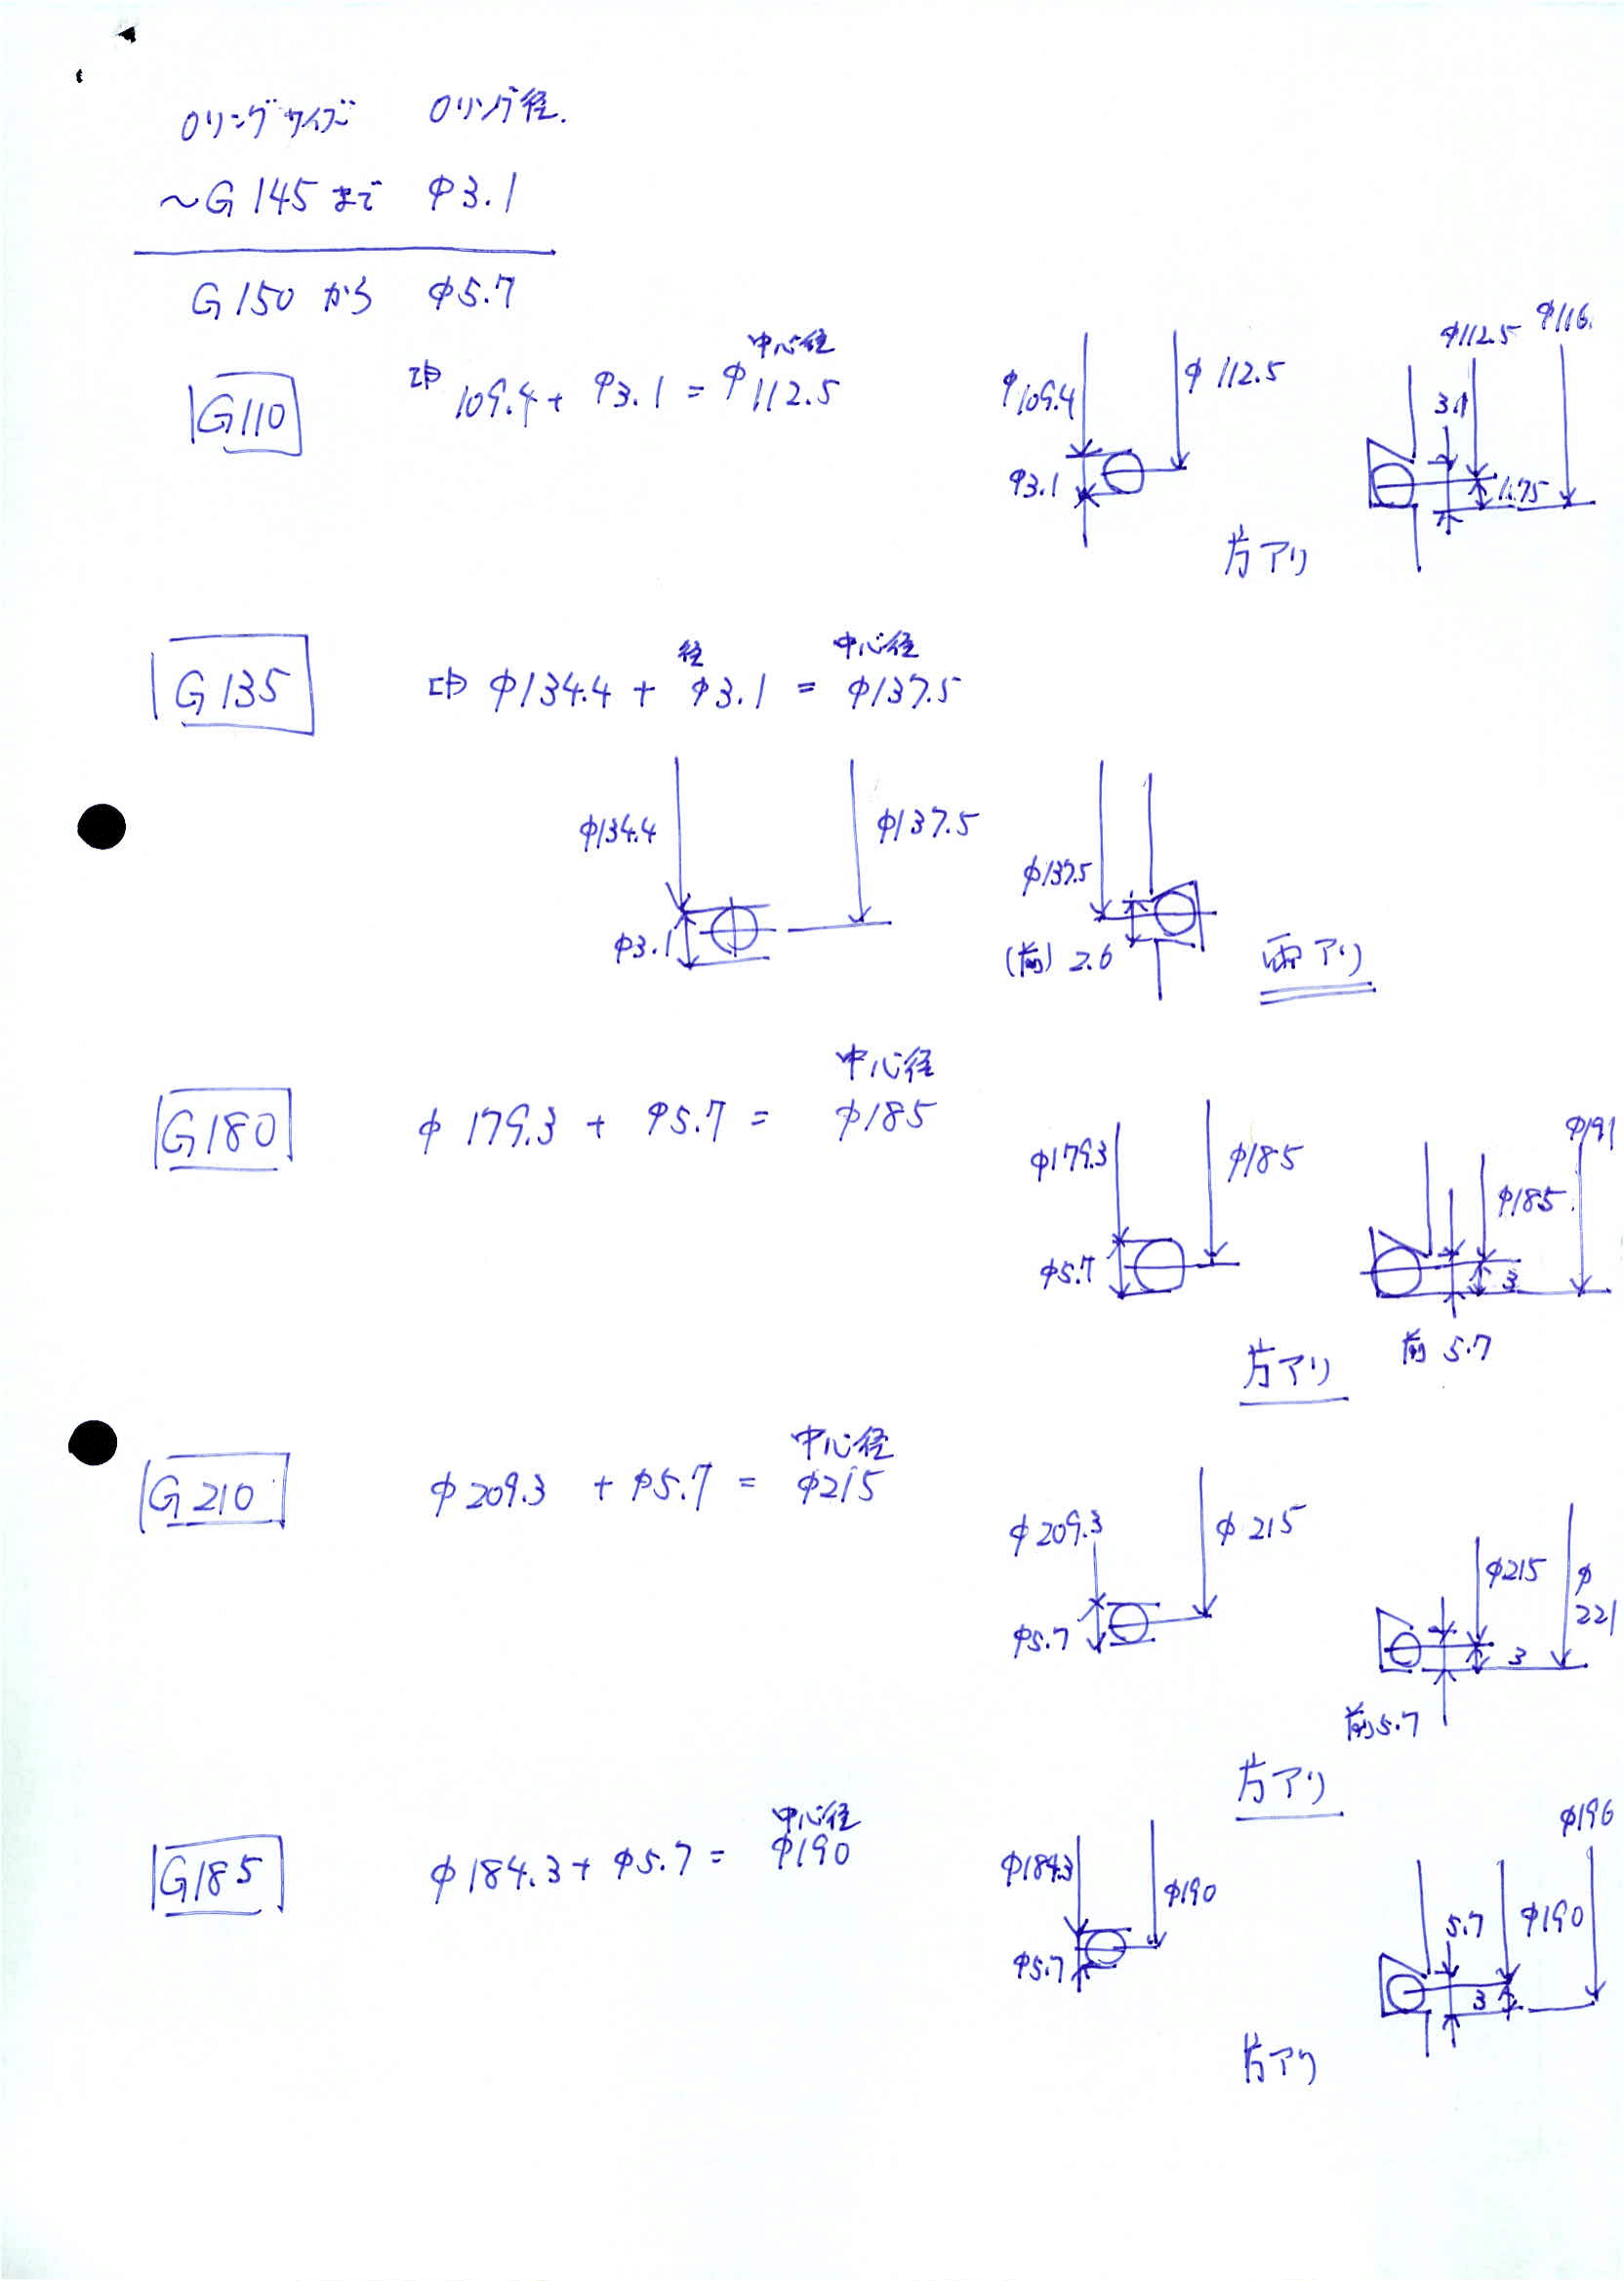 Oリングサイズ Oリング径.
～G145まで φ3.1
G150から φ5.7
中心径
G110 φ109.4 + φ3.1 = φ112.5
φ109.4 φ112.5
φ3.1
φ112.5 φ116.
3.1
1.75
片アリ
径 中心径
G135 φ134.4 + φ3.1 = φ137.5
φ134.4 φ137.5
φ3.1
φ137.5
(前) 2.6
両アリ
中心径
G180 φ179.3 + φ5.7 = φ185
φ179.3 φ185
φ5.7
φ191
φ185
3
前 5.7
片アリ
中心径
G210 φ209.3 + φ5.7 = φ215
φ209.3 φ215
φ5.7
φ215 φ221
3
前5.7
片アリ
中心径
G185 φ184.3 + φ5.7 = φ190
φ184.3 φ190
φ5.7
φ196
5.7 φ190
3
片アリ